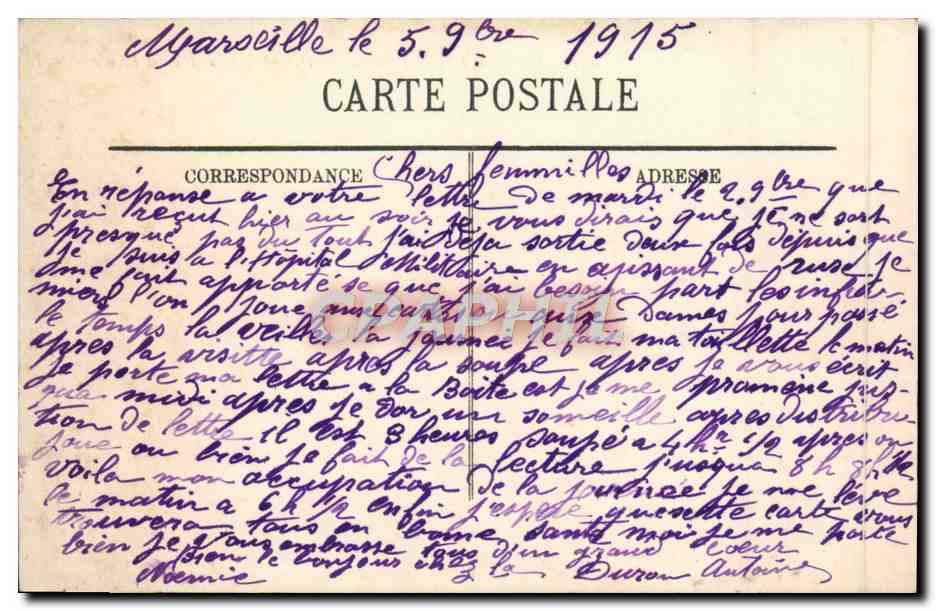 Marseille le 5. 9bre 1915
CARTE POSTALE
CORRESPONDANCE Chers ADRESSE
En réponse a votre lettre de mardi le 2. 9bre que
j'ai reçut hier au soir je vous dirais que je ne sort
presque pas du tout j'ai deja sortie deux fois depuis que
je suis a l'Hopital Militaire en agissant de ruse je
me fait apporté se que j'ai besoin part les infir-
miers l'on joue aux cartes dames pour passé
le temps la veilles la journee je fais ma toillette le matin
apres la visitte apres la soupe apres je vous écrit
je porte ma lettre a la Boite est je me promene jus-
qua midi apres je dor un someille apres distribu
tion de lettre il est 3 heures soupé a 4 hr 1/2 apres on
joue ou bien je fait de la lecture j'usqua 8 h
voila mon accupation de la journée je me lève
le matin a 6 h 1/2 enfin j'espere que sette carte vous
trouvera tous en bonne santé moi je me porte
bien je vous embrasse tous d'un grand coeur
bien le bonjour chez la
Noemie Duron Antoine
CPAPHIL